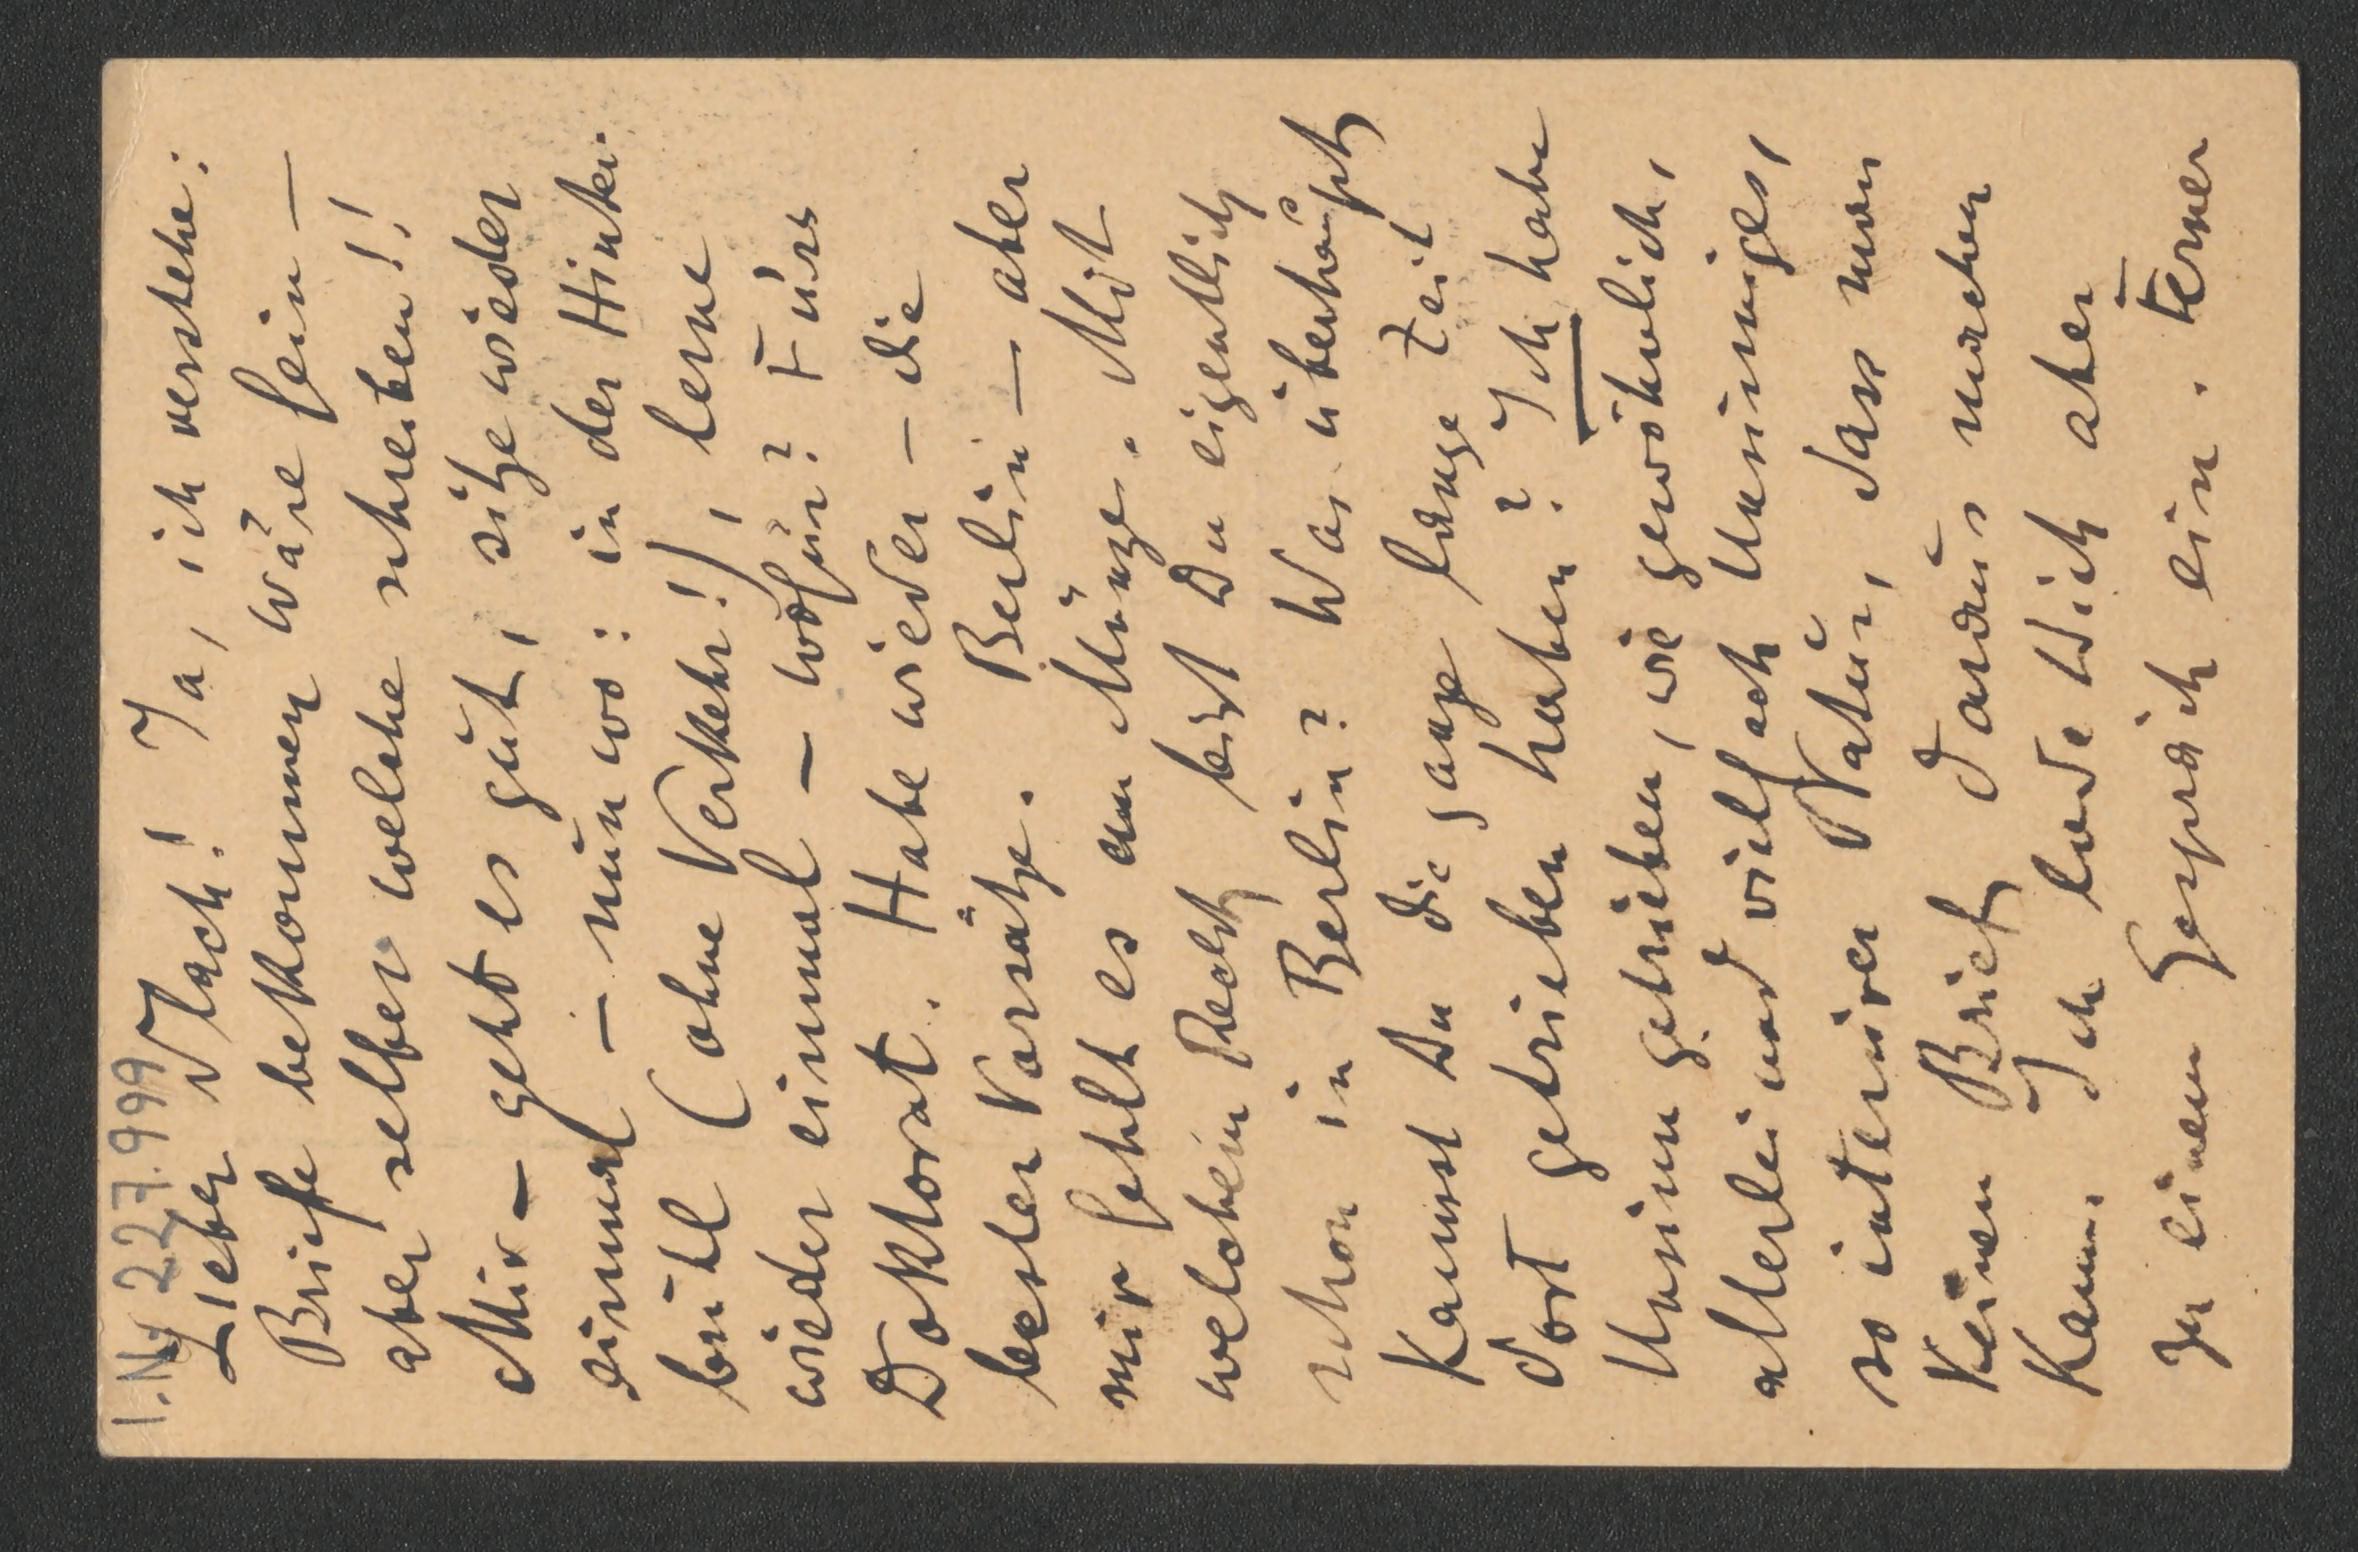 I.N. 227.999
Lieber Vlach! Ja, ich verstehe:
Briefe bekommen wäre fein —
aber selber welche schreiben!!
Mir — geht es gut, sitze wieder
einmal — nun wo: in der Hinter-
brühl (ohne Verkehr!), lerne
wieder einmal — wofür? Fürs
Doktorat. Habe wieder — die
besten Vorsätze. Berlin — aber
mir fehlt es an Münze. Mit
welchem Recht bist Du eigentlich
schon in Berlin? Was überhaupt
kannst Du die ganze lange Zeit
dort getrieben haben? Ich habe
Unsinn getrieben, wie gewöhnlich,
allerlei und vielfach Unsinniges,
so intensiver Natur, dass man
keinen Brief daraus machen
kann. Ich lade Dich aber
zu einem Gespräch ein. Ferner